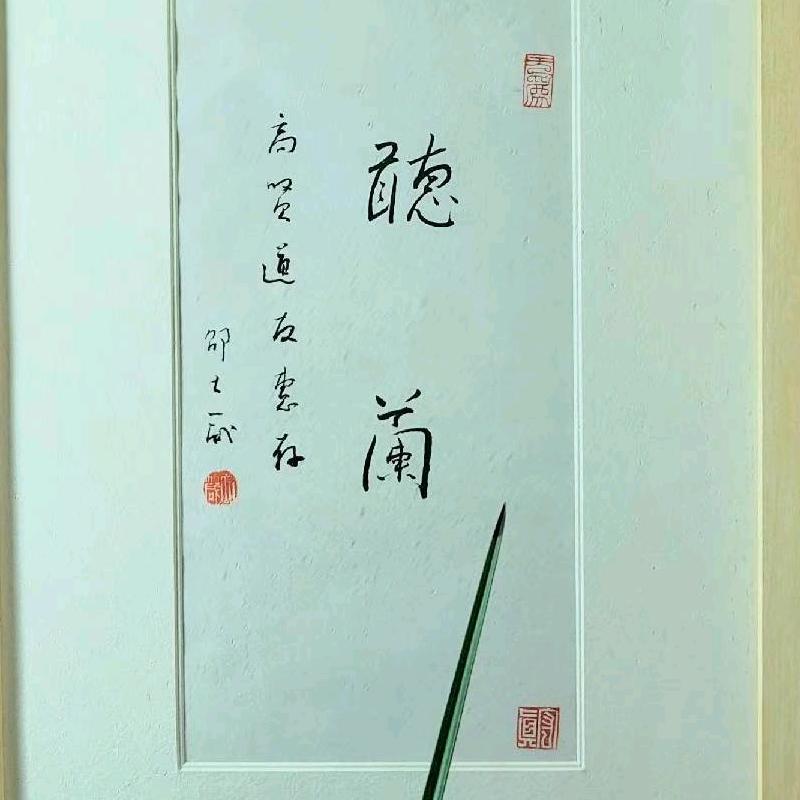 聽蘭
高賢道友惠存
邵士